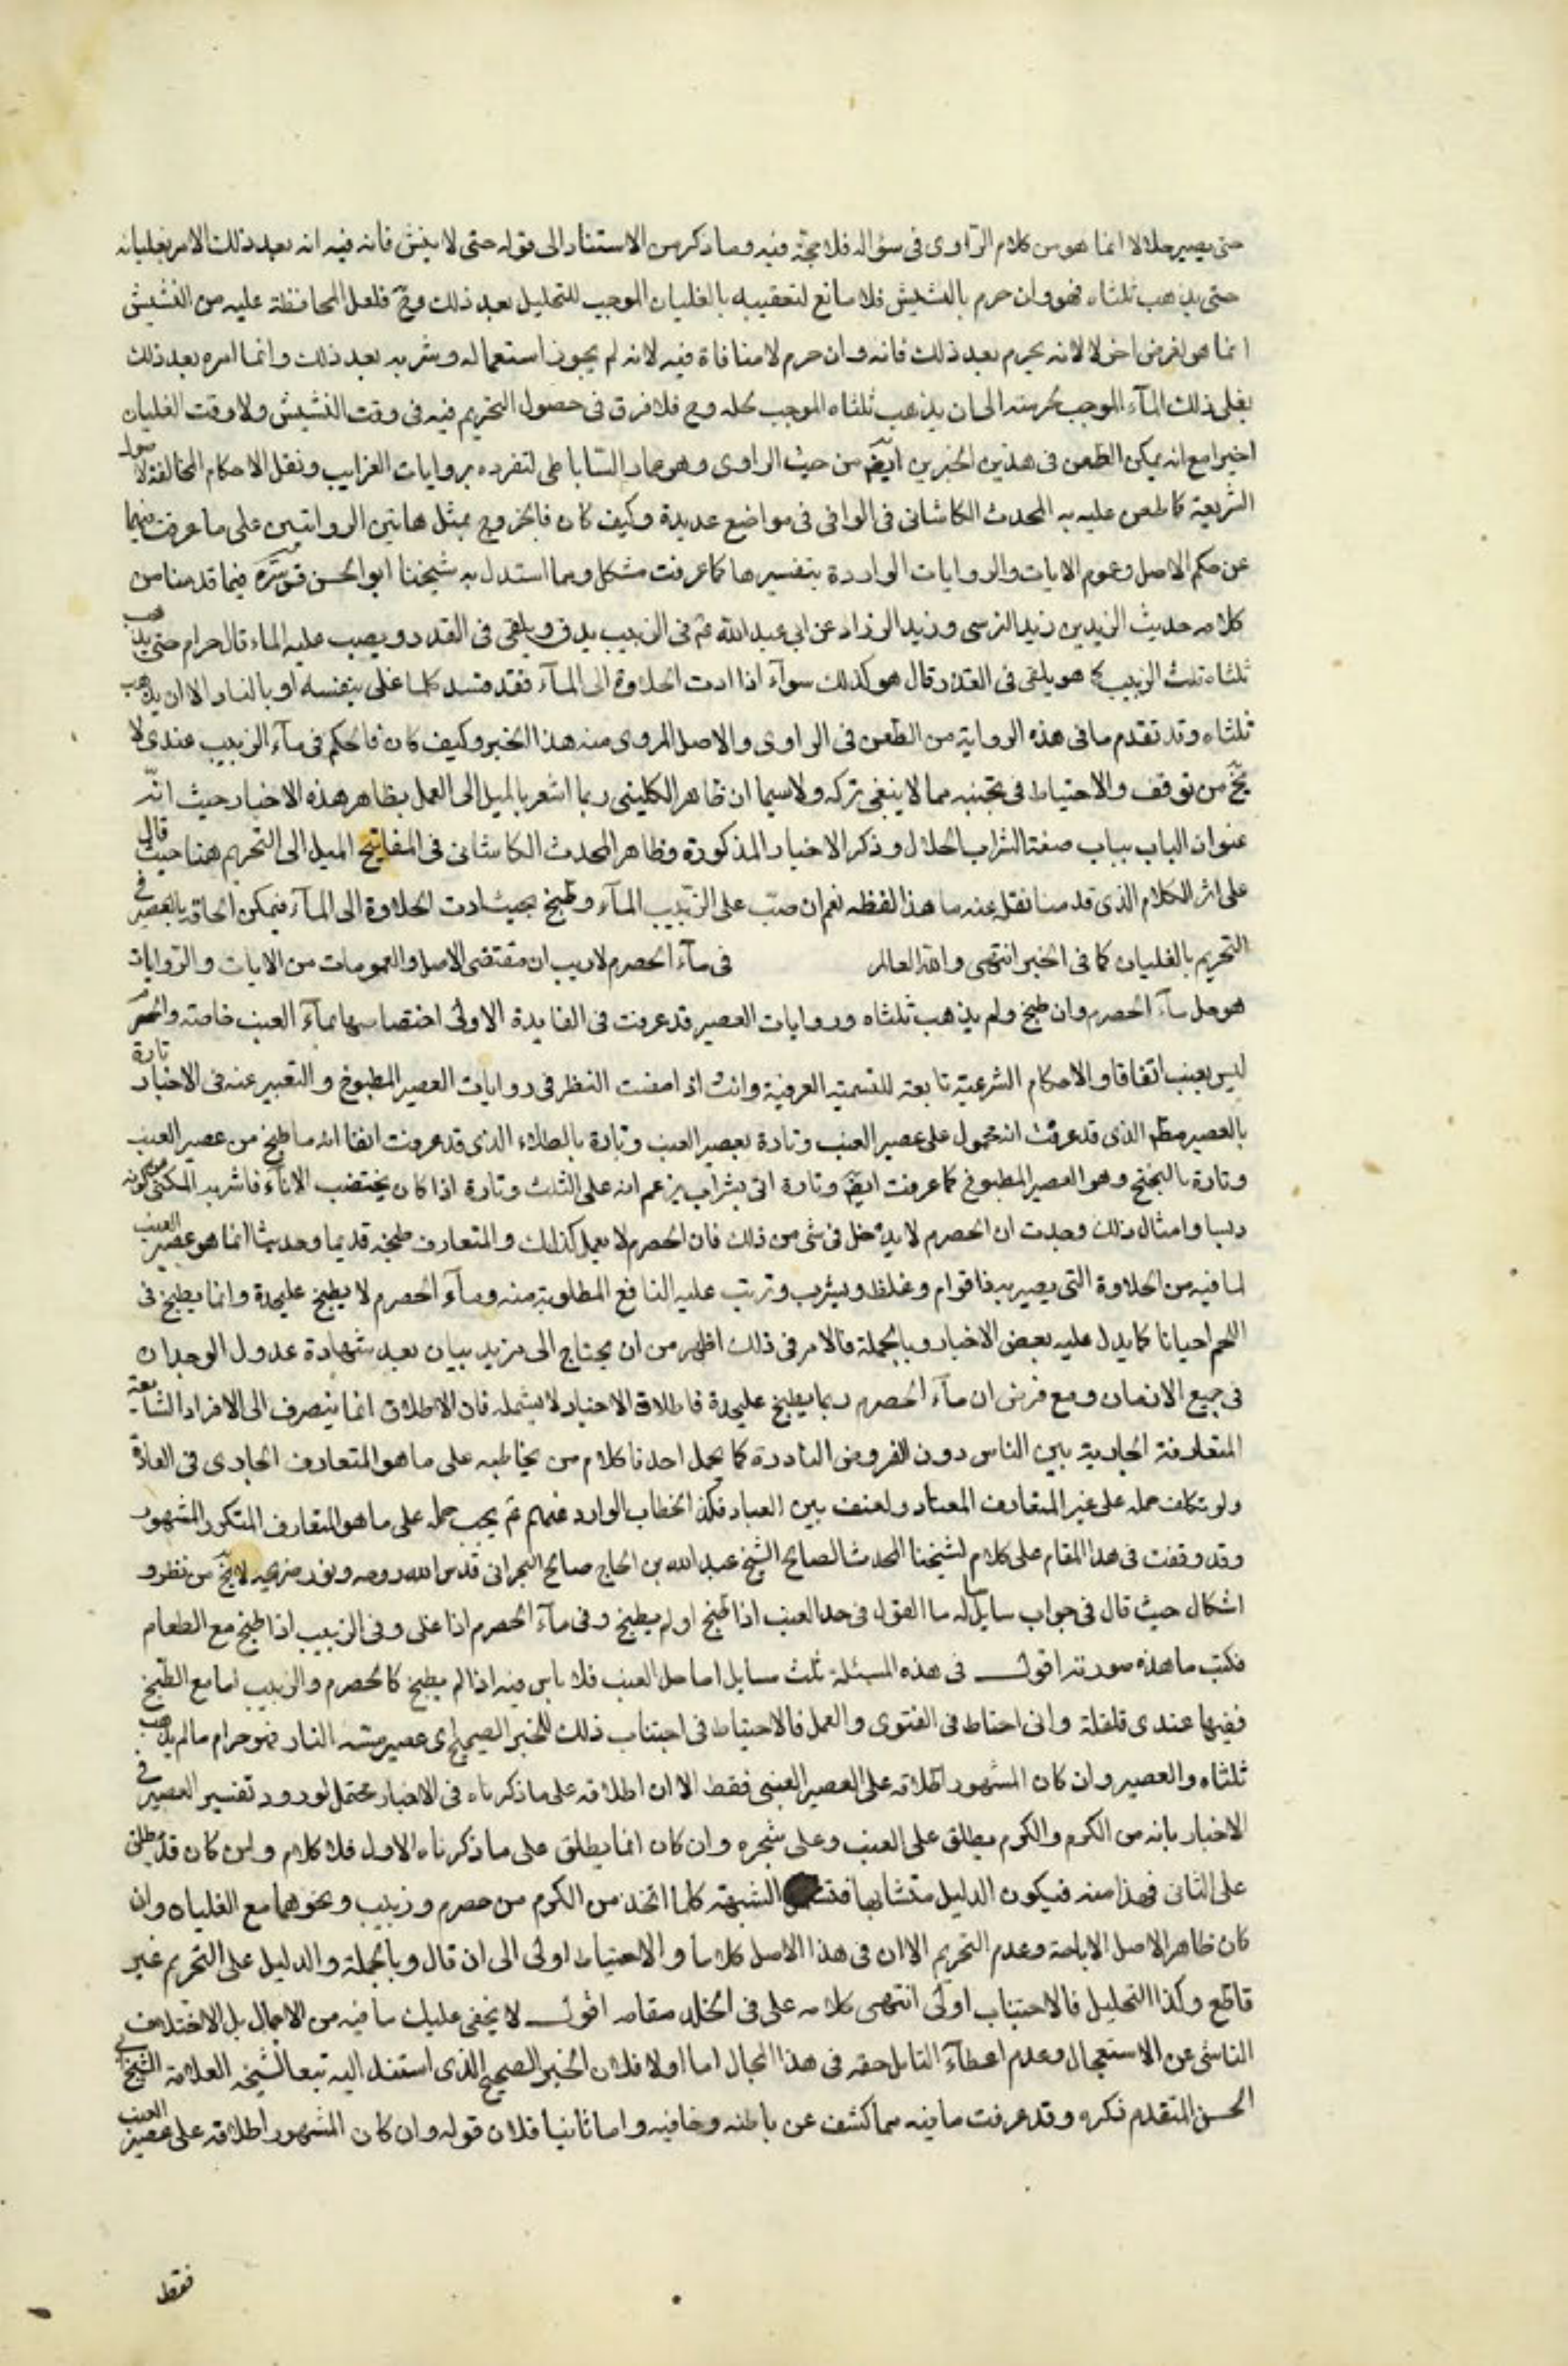 حتى يصير حلالا انما هو من كلام الراوى فى سؤاله فلا حجة فيه وما ذكر من الاستناد الى قوله حتى لا ينش فانه فيه انه بعد ذلك الامر بغليانه
حتى يذهب ثلثاه فهو وان حرم بالنشيش فلا مانع لتعقيبه بالغليان الموجب للتحليل بعد ذلك وح فلعل المحافظة عليه من النشيش
انما هو لغرض اخر لا لانه يحرم بعد ذلك فانه وان حرم لا منافاة فيه لانه لم يجوز استعماله وشربه بعد ذلك وانما امره بعد ذلك
بغلى ذلك المآء الموجب لحرمته الى ان يذهب ثلثاه الموجب لحله وح فلا فرق فى حصول التحريم فيه فى وقت النشيش ولا وقت الغليان
اخيرا مع انه يمكن الطعن فى هذين الخبرين ايضا من حيث الراوى وهو عمار الساباطى لتفرده بروايات الغرايب ونقل الاحكام المخالفة لاصول
الشريعة كما طعن عليه به المحدث الكاشانى فى الوافى فى مواضع عديدة وكيف كان فالخروج بمثل هاتين الروايتين على ما عرفت فيهما
عن حكم الاصل وعموم الايات والروايات الواردة بتفسيرها كما عرفت مشكل ومما استدل به شيخنا ابو الحسن قدس سره فيما قدمنا من
كلامه حديث الزيدين زيد النرسى وزيد الزراد عن ابى عبد الله عم فى الزبيب يدق ويلقى فى القدر ويصب عليه الماء قال حرام حتى يذهب
ثلثاه قلت الزبيب كما هو يلقى فى القدر قال هو كذلك سوآء اذا ادت الحلاوة الى المآء فقد فسد كلما غلى بنفسه او بالنار الا ان يذهب
ثلثاه وقد تقدم ما فى هذه الرواية من الطعن فى الراوى والاصل المروى منه هذا الخبر وكيف كان فالحكم فى مآء الزبيب عندى لا
يخ من توقف والاحتياط فى تجنبه مما لا ينبغى تركه ولا سيما ان ظاهر الكلينى ربما اشعر بالميل الى العمل بظاهر هذه الاخبار حيث انه
عنوان الباب بباب صفة الشراب الحلال وذكر الاخبار المذكورة وظاهر المحدث الكاشانى فى المفاتيح الميل الى التحريم هنا حيث قال
على اثر الكلام الذى قدمنا نقل عنه ما هذا لفظه نعم ان صب على الزبيب المآء وطبخ بحيث ادت الحلاوة الى المآء فيمكن الحاقه بالعصير فى
التحريم بالغليان كما فى الخبر انتهى والله العالم فى مآء الحصرم لا ريب ان مقتضى الاصل والعمومات من الايات والروايات
هو حل مآء الحصرم وان طبخ ولم يذهب ثلثاه وروايات العصير قد عرفت فى الفايدة الاولى اختصاصها بمآء العنب خاصة والحصرم
ليس بعنب اتفاقا والاحكام الشرعية تابعة للتسمية العرفية وانت اذا امعنت النظر فى روايات العصير المطبوخ والتعبير عنه فى الاخبار تارة
بالعصير مطلقا الذى قد عرفت انه محمول على عصير العنب وتارة بعصير العنب وتارة بالطلاء الذى قد عرفت انفا انه ما طبخ من عصير العنب
وتارة بالبختج وهو العصير المطبوخ كما عرفت ايضا وتارة اتى بشراب يزعم انه على الثلث وتارة اذا كان يخضب الاناء فاشربه المكنى عن كونه
دبسا وامثال ذلك وجدت ان الحصرم لا يدخل فى شى من ذلك فان الحصرم لا يعمل كذلك والمتعارف طبخه قديما وحديثا انما هو عصير العنب
لما فيه من الحلاوة التى يصير بها ذا قوام وغلظ ويشرب وترتب عليه المنافع المطلوبة منه ومآء الحصرم لا يطبخ عليحدة وانما يطبخ فى
اللحم احيانا كما يدل عليه بعض الاخبار وبالجملة فالامر فى ذلك اظهر من ان يحتاج الى مزيد بيان بعد شهادة عدول الوجدان
فى جميع الازمان ومع فرض ان مآء الحصرم ربما يطبخ عليحدة فاطلاق الاخبار لا يشمله فان الاطلاق انما ينصرف الى الافراد الشايعة
المتعارفة الجارية بين الناس دون الفروض النادرة كما يحمل احدنا كلام من يخاطبه على ما هو المتعارف الجارى فى العادة
ولو تكلف حمله على غير المتعارف المعتاد ولعنف بين العباد فكذا الخطاب الوارد عنهم عم يجب حمله على ما هو المتعارف المتكرر المشهور
وقد وقفت فى هذا المقام على كلام لشيخنا المحدث الصالح الشيخ عبد الله بن الحاج صالح البحرانى قدس الله روحه ونور ضريحه لا يخ من نظر و
اشكال حيث قال فى جواب سايل سأله ما القول فى حد العنب اذا طبخ او لم يطبخ وفى مآء الحصرم اذا غلى وفى الزبيب اذا طبخ مع الطعام
فكتب ما هذه صورته اقول فى هذه المسئلة ثلث مسايل اما حل العنب فلا باس فيه اذا لم يطبخ كالحصرم والزبيب اما مع الطبخ
ففيها عندى قلقلة وانى احتاط فى الفتوى والعمل فالاحتياط فى اجتناب ذلك للخبر الصحيح اى عصير مسته النار فهو حرام ما لم يذهب
ثلثاه والعصير وان كان المشهور اطلاقه على العصير العنبى فقط الا ان اطلاقه على ما ذكرناه فى الاخبار محتمل لورود تفسير العصير فى
الاخبار بانه من الكرم والكرم يطلق على العنب وعلى شجره وان كان انما يطلق على ما ذكرناه الاول فلا كلام وان كان قد يطلق
على الثانى فهذا منه فيكون الدليل متشابها الشبهة كلما اتخذ من الكرم من حصرم وزبيب ونحوهما مع الغليان وان
كان ظاهر الاصل الاباحة وعدم التحريم الا ان فى هذا الاصل كلاما والاحتياط اولى الى ان قال وبالجملة والدليل على التحريم غير
قاطع وكذا التحليل فالاجتناب اولى انتهى كلامه على فى الخلد مقامه اقول لا يخفى عليك ما فيه من الاجمال بل الاختلاف
الناشى عن الاستعجال وعدم اعطآء التامل حقه فى هذا المجال اما اولا فلان الخبر الصحيح الذى استند اليه تبعا لشيخه العلامة الشيخ ابى
الحسن المتقدم ذكره وقد عرفت ما فيه مما كشف عن باطنه وخافيه واما ثانيا فلان قوله وان كان المشهور اطلاقه على عصير العنب
فقط